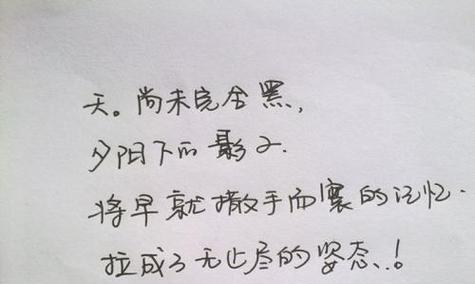 天。尚未完全黑,
夕阳下的影子.
将早就撒手而寰的记忆.
拉成了无止尽的姿态.!